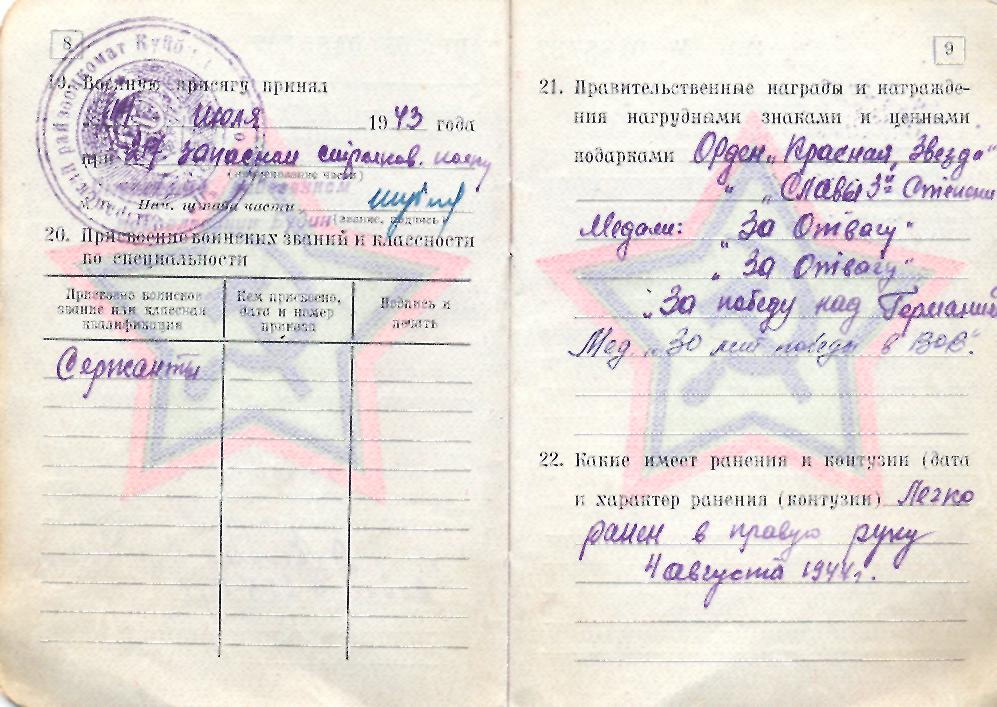 8
19. Военную присягу принял
июля 1943 года
при 29 запасном стрелков. полку
(наименование части)
Нач. штаба части
(звание, подпись)
20. Присвоение воинских званий и классности
по специальности
Присвоено воинское
звание или классная
квалификация
Кем присвоено,
дата и номер
приказа
Подпись и
печать
Сержант
9
21. Правительственные награды и награжде-
ния нагрудными знаками и ценными
подарками Орден „Красная Звезда“
„ „Славы 3й Степени
Медали: „За Отвагу“
„За Отвагу“
„За победу над Германией
Мед. „30 лет победы в ВОВ“.
22. Какие имеет ранения и контузии (дата
и характер ранения (контузии) Легко
ранен в правую руку
4 августа 1944г.